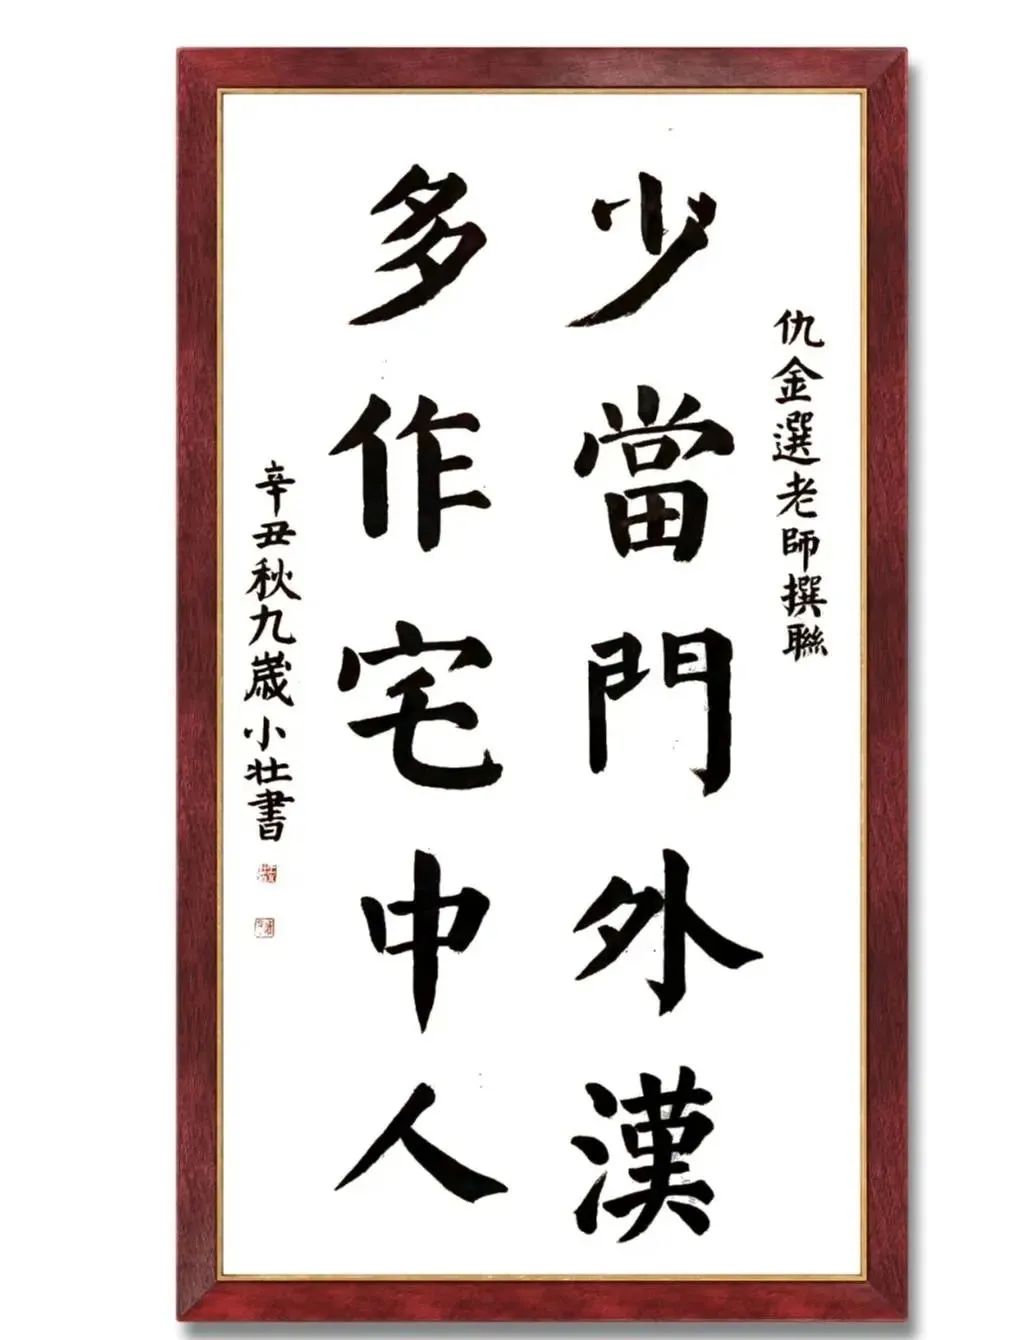 仇金選老師撰聯
少當門外漢
多作宅中人
辛丑秋九歲小壯書